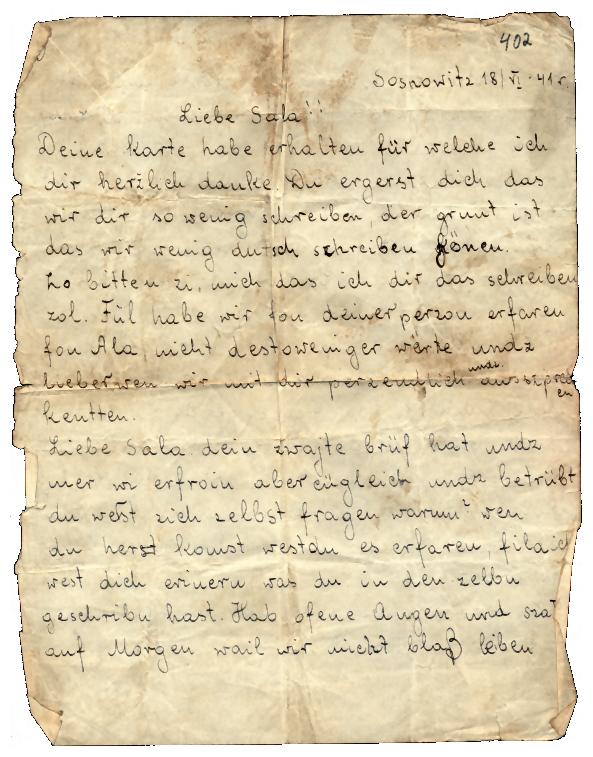 402
Sosnowitz 18/VI 41 r.
Liebe Sala!!
Deine karte habe erhalten für welche ich
dir herzlich danke. Du ergerst dich das
wir dir so wenig schreiben, der grunt ist
das wir wenig dutsch schreiben könen.
Zo bitten zi, mich das ich dir das schreiben
zol. Fül habe wir fon deiner perzon erfaren
fon Ala, nicht destoweniger werte undz
lieber wen wir mit dir perzendlich undz ausszprechen
kentten.
Liebe Sala. dein zwajte brüf hat undz
mer wi erfroin aber cugleich undz betrübt
du west zich zelbst fragen warum? wen
du herst komst westdu es erfaren, filaich
west dich erinern was du in den zelbn
geschribn hast. Hab ofene Augen und
auf Morgen wail wir nicht bloß leben